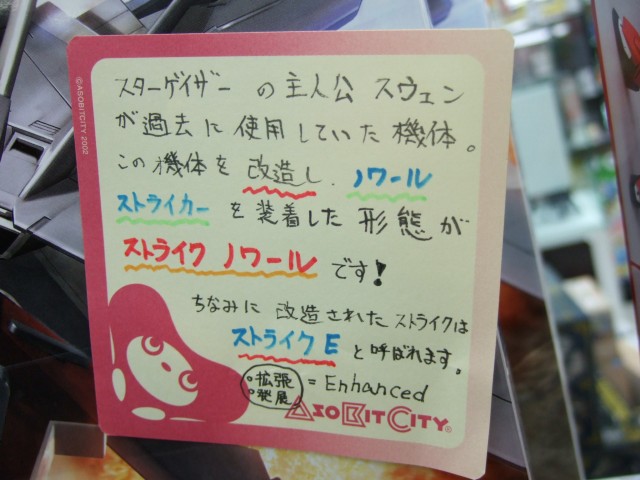 スターゲイザーの主人公 スウェン
が過去に使用していた機体。
この機体を改造し、ノワール
ストライカーを装着した形態が
ストライクノワールです!
ちなみに改造されたストライクは
ストライクEと呼ばれます。
。拡張 = Enhanced
。発展
ASOBITCITY®
©ASOBITCITY 2002